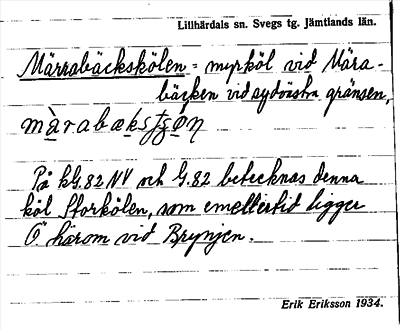 Lillhärdals sn. Svegs tg. Jämtlands län.
Märrabäckskölen = myrköl vid Mära-
bäcken vid sydöstra gränsen,
På kG. 82 NV och G. 82 betecknas denna
köl Storkölen, som emellertid ligger
Ö härom vid Brynjen.
Erik Eriksson 1934.